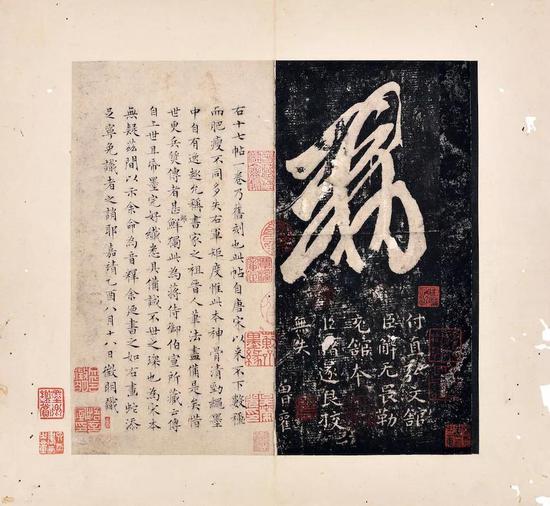 敕
付直弘文館
臣解无畏勒
充館本
臣褚遂良挍
無失
曾雚
右十七帖一卷乃舊刻也此帖自唐宋以來不下數種
而肥瘦不同多失右軍矩度惟此本神骨清勁繩墨
中自有逸趣允稱書家之祖晉人筆法盡備是矣惜
世更兵燹傳者甚鮮獨此為蔣侍御伯宣所藏正傳
自上世且帋墨完好纖悉具備誠不世之琛也為宋本
無疑茲間以示余命為音釋余遂書之如右畫蛇添
足寧免識者之誚耶嘉靖乙酉八月十八日徵明識